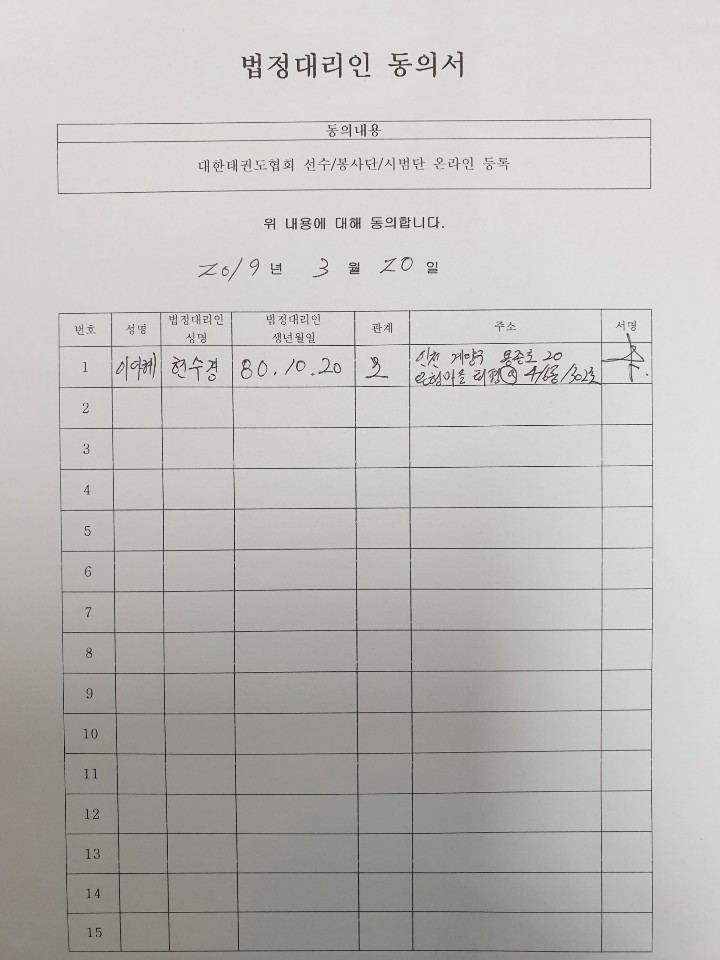 법정대리인 동의서
동의내용
대한태권도협회 선수/봉사단/시범단 온라인 등록
위 내용에 대해 동의합니다.
2019년 3월 20일
번호 성명 법정대리인 성명 법정대리인 생년월일 관계 주소 서명
1 이여혜 현수경 80.10.20 모 인천 계양구 용종로 20
초정마을 태평 416동 1302호
2
3
4
5
6
7
8
9
10
11
12
13
14
15